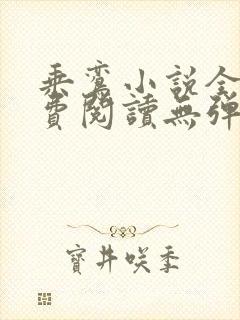 乘鸾小说全
费阅读无弹
寶井咲季